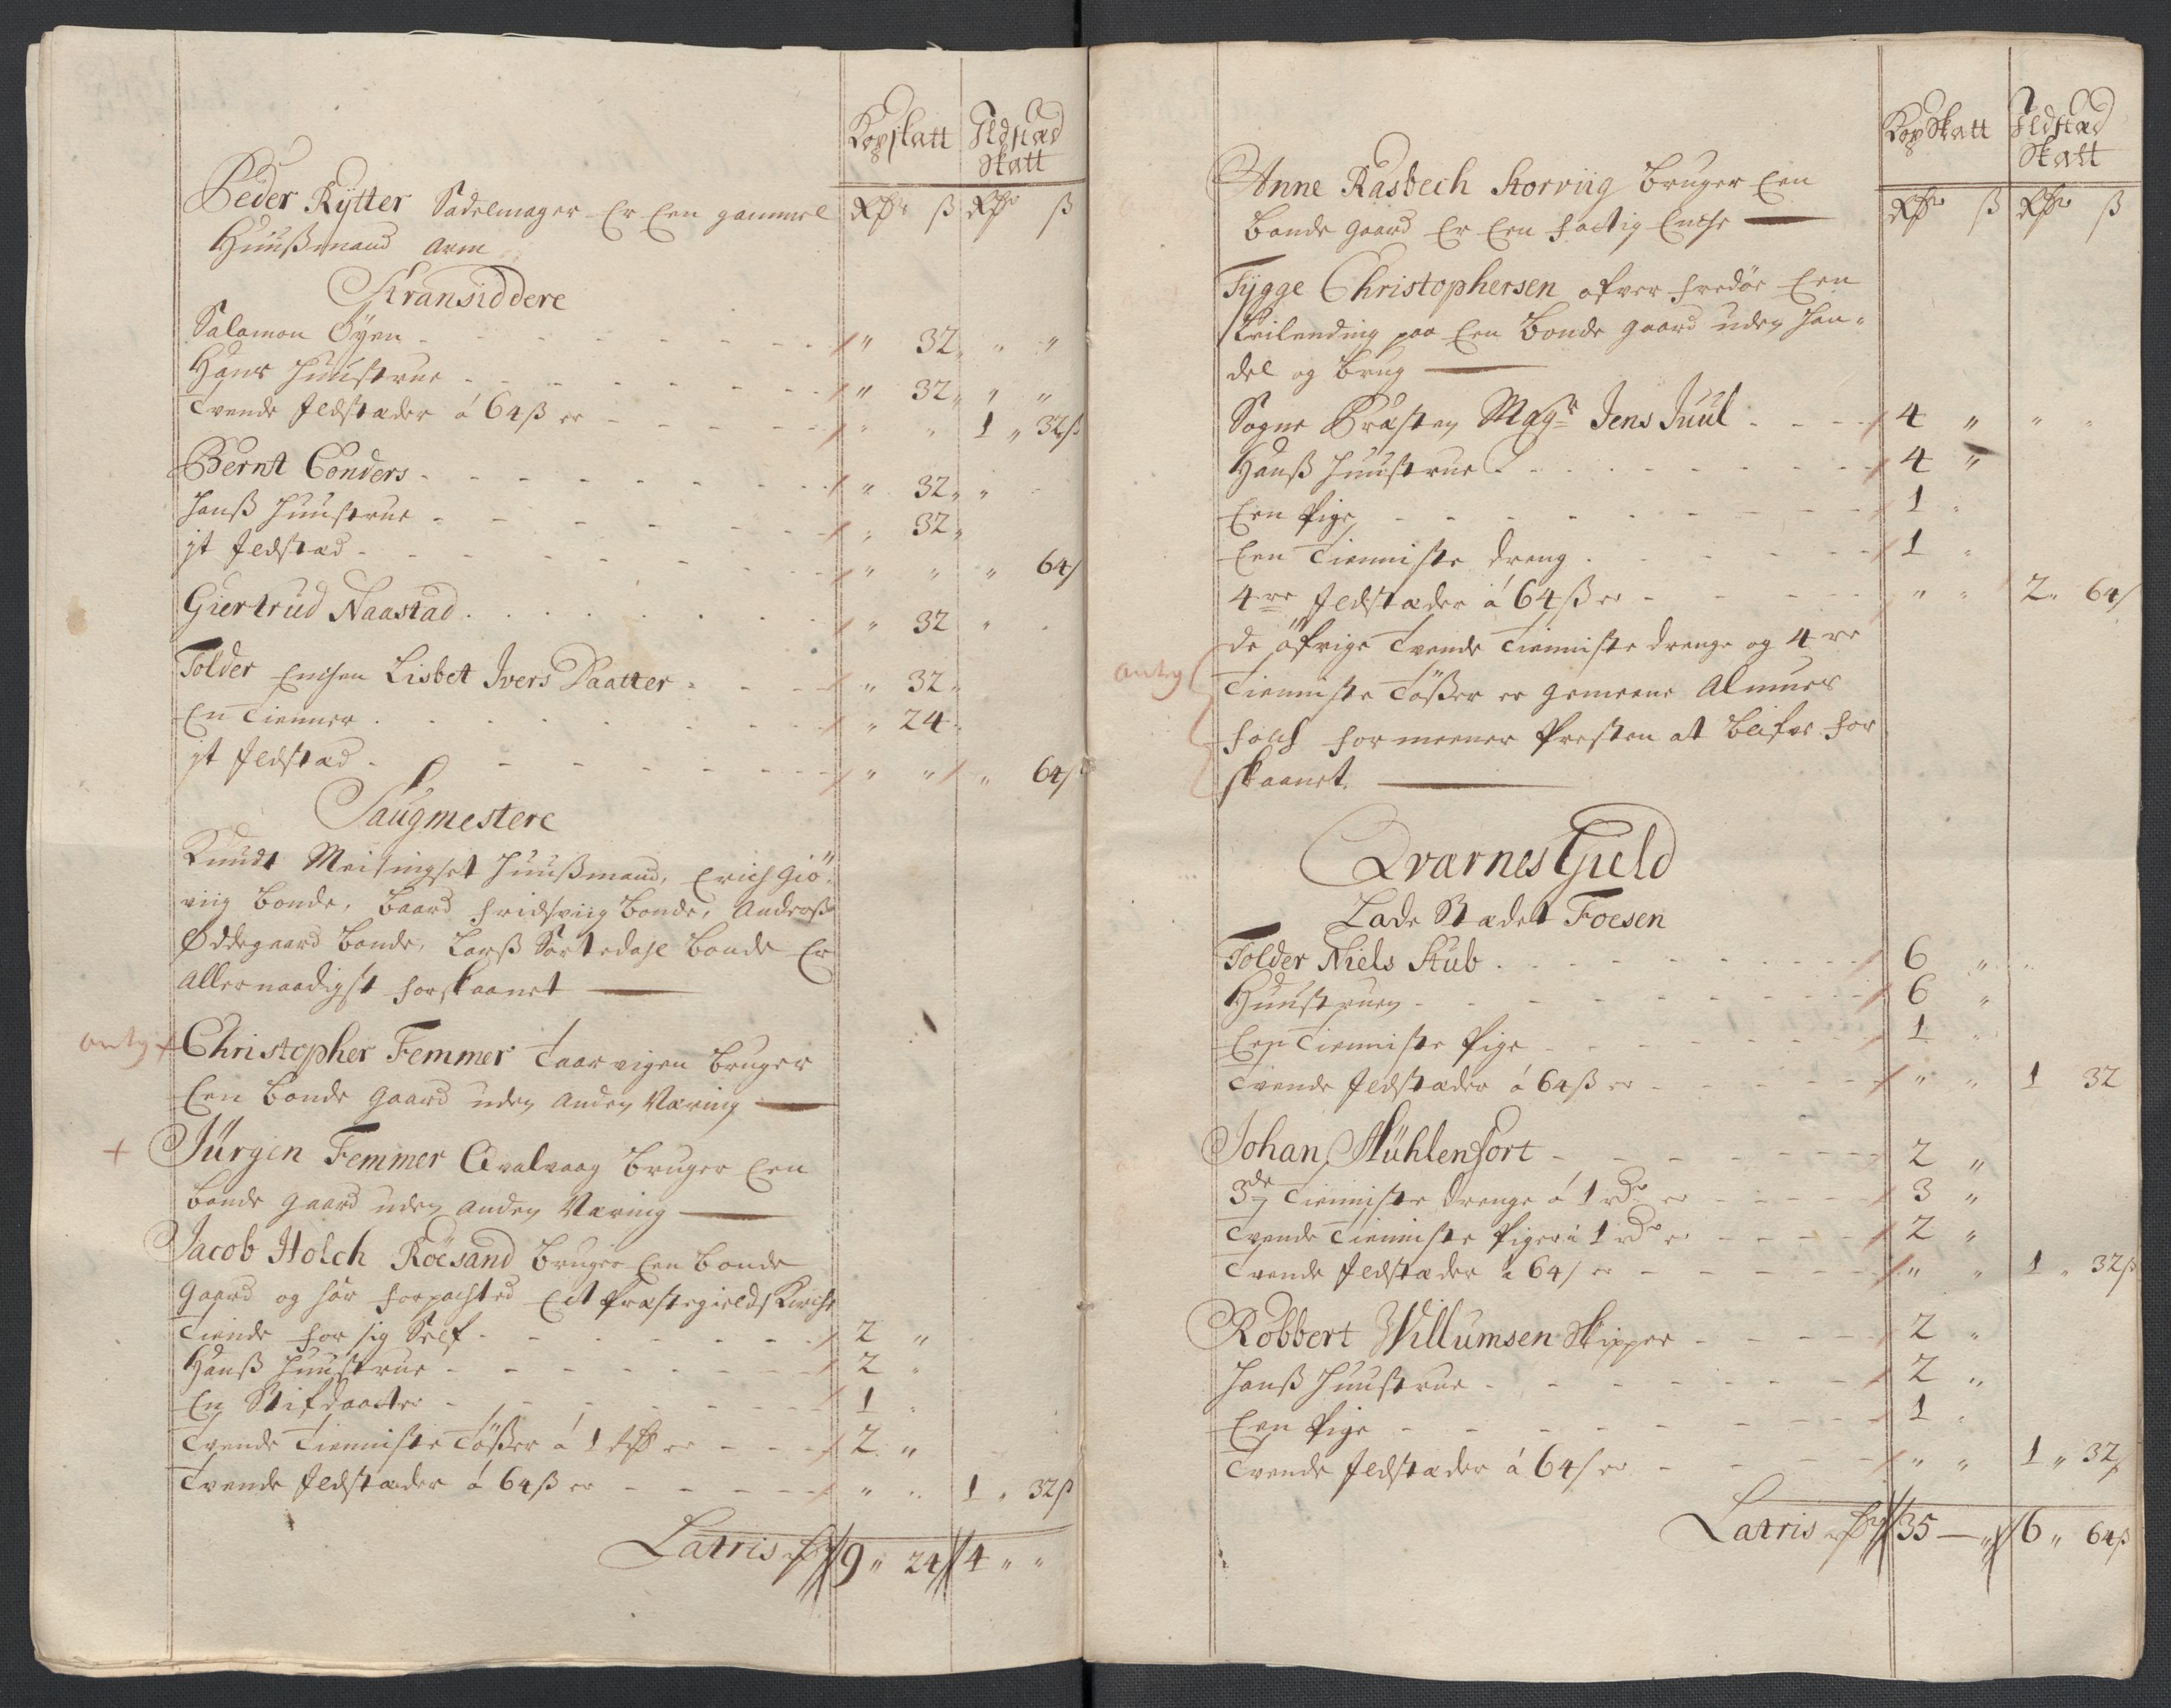 Kopskatt Ildstæd
Skatt
Peder Rytter Sadelmager Er Een gammel Rdr ß Rdr ß
Huußmand Arm
Stransiddere
Salamon Öyen - - - " 32 " "
Hans Huustrue - - - " 32 " "
Tvende Ildstæder á 64 ß er - - - " " 1 " 32 ß
Bernt Conders - - - " 32 "
Hanß Huustrue - - - " 32 "
it Ildstæd - - - " " " 64 ß
Giertrud Naastad - - - " 32 "
Tolder Enchen Lisbet Ivers Daatter - - - " 32 "
En Tienner - - - " 24
it Ildstæd - - - " " " 64 ß
Saugmestere
Knudt Meisingset Huußmand, Erich Giö-
viig bonde, Baard Fridsviig bonde, Anderß
Ødegaard bonde, Larß Sortedahl bonde Er
Allernaadigst forskaanet
Christopher Femmer Taarvigen bruger
Een bonde Gaard uden Anden Næring
Jürgen Femmer Qvalvaag bruger Een
bonde Gaard uden Anden Næring
Jacob Holch Röesand bruger Een bonde
Gaard og har forpachted Eet Præstegields Kirche
Tiende for sig Self - - - 2 "
Hanß Huustrue - - - 2 "
En Stifdaatter - - - 1 "
Tvende Tienniste Tößer á 1 Rdr er - - - 2 "
Tvende Ildstæder á 64 ß er - - - " " 1 " 32 ß
Latris 9 " 24 4 " "
Kopskatt Ildstæd
Skatt
Rdr ß Rdr ß
Anne Rasbech Storviig bruger Een
bonde gaard Er Een fattig Enche
Tygge Christophersen ofver Fredöe Een
Skilending paa Een bonde gaard uden Han-
del og brug
Sogne Præsten Magr Jens Juul - - - 4 " " "
Hanß Huustrue - - - 4 "
Een Pige - - - 1 "
Een Tienniste dreng - - - 1 "
4re Ildstæder á 64 ß er - - - " " 2 " 64 ß
de öfrige Tvende Tienniste drenge og 4re
Tienniste Tößer er gemeene Almues
folch formeener Presten at blifve for
skaanet.
Qværnes Gield
Lade Stædet Foesen
Tolder Niels Stub - - - 6 "
Huustruen - - - 6 "
Een Tienniste Pige - - - 1 "
Tvende Ildstæder á 64 ß er - - - " " 1 32
Johan Mühlenfort - - - 2 "
3de Tienniste drenge á 1 rdr er - - - 3 "
Tvende Tienniste Piger á 1 rdr er - - - 2 "
Tvende Ildstæder á 64 ß er - - - " " 1 " 32 ß
Robbert Willumsen Skipper - - - 2 "
Hanß Huustrue - - - 2 "
Een Pige - - - 1 "
Tvende Ildstæder á 64 ß er - - - " " 1 " 32 ß
Latris 35 — " 6 " 64 ß